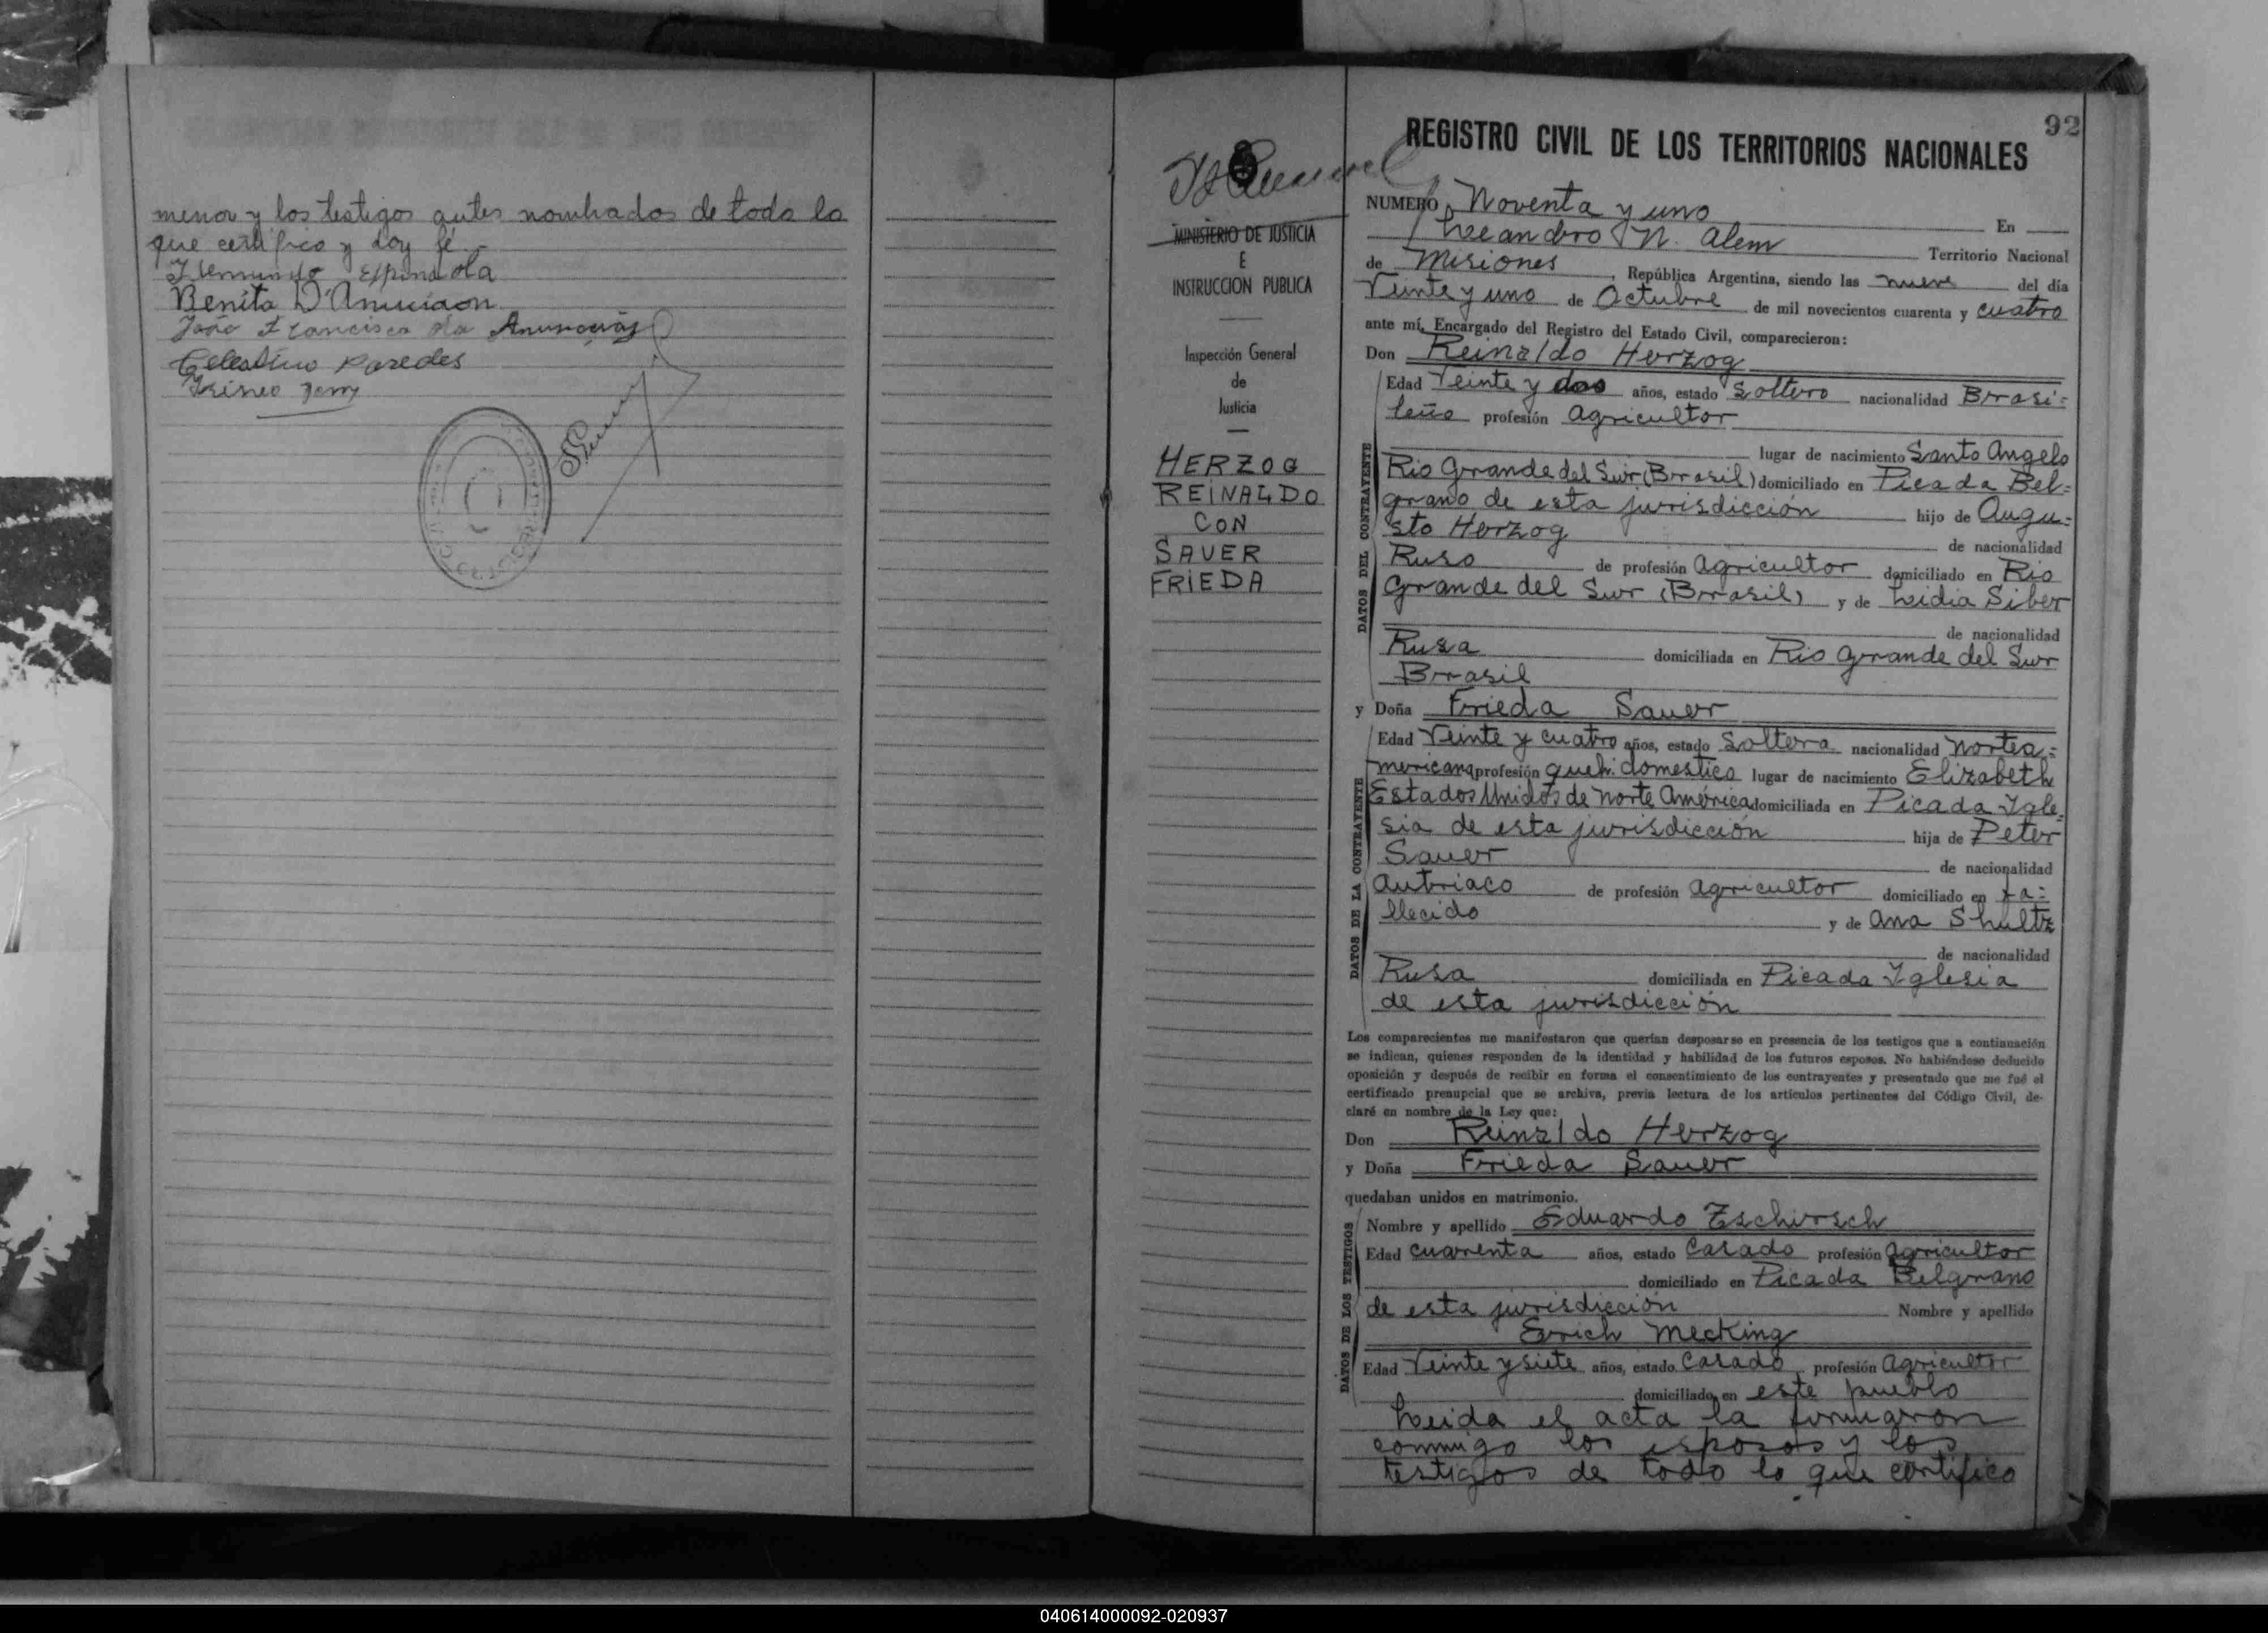 menor y los testigos antes nombrados de todo lo
que certifico y doy fé.-
Espindola
Benita D'Anunciaon
João Francisco da Anunciação
Celestino Paredes
Irineo
92
REGISTRO CIVIL DE LOS TERRITORIOS NACIONALES
MINISTERIO DE JUSTICIA
E
INSTRUCCION PUBLICA
Inspección General
de
Justicia
HERZOG
REINALDO
CON
SAUER
FRIEDA
NUMERO Noventa y uno En
Leandro N. Alem Territorio Nacional
de Misiones, República Argentina, siendo las nueve del día
Veinte y uno de Octubre de mil novecientos cuarenta y cuatro
ante mí, Encargado del Registro del Estado Civil, comparecieron:
Don Reinaldo Herzog
DATOS DEL CONTRAYENTE
Edad Veinte y dos años, estado Soltero nacionalidad Brasi=
leño profesión Agricultor
lugar de nacimiento Santo Angelo
Rio Grande del Sur (Brasil) domiciliado en Picada Bel=
grano de esta jurisdicción hijo de Augu=
sto Herzog
de nacionalidad
Ruso de profesión Agricultor domiciliado en Rio
Grande del Sur (Brasil) y de Leidia Siber
de nacionalidad
Rusa domiciliada en Rio Grande del Sur
Brasil
y Doña Frieda Sauer
DATOS DE LA CONTRAYENTE
Edad Veinte y cuatro años, estado Soltera nacionalidad Nortea=
mericana profesión queh. domestico lugar de nacimiento Elizabeth
Estados Unidos de Norte América domiciliada en Picada Igle=
sia de esta jurisdicción hija de Peter
Sauer
de nacionalidad
Autriaco de profesión Agricultor domiciliado en Fa=
llecido y de Ana Shultz
de nacionalidad
Rusa domiciliada en Picada Iglesia
de esta jurisdicción
Los comparecientes me manifestaron que querían desposarse en presencia de los testigos que a continuación
se indican, quienes responden de la identidad y habilidad de los futuros esposos. No habiéndose deducido
oposición y después de recibir en forma el consentimiento de los contrayentes y presentado que me fué el
certificado prenupcial que se archiva, previa lectura de los artículos pertinentes del Código Civil, de-
claré en nombre de la Ley que:
Don Reinaldo Herzog
y Doña Frieda Sauer
quedaban unidos en matrimonio.
DATOS DE LOS TESTIGOS
Nombre y apellido Eduardo Zschirsch
Edad cuarenta años, estado Casado profesión Agricultor
domiciliado en Picada Belgrano
de esta jurisdicción Nombre y apellido
Erich Mecking
Edad Veinte y siete años, estado Casado profesión Agricultor
domiciliado en este pueblo
Leida el acta la firmaron
conmigo los esposos y los
testigos de todo lo que certifico
040614000092-020937